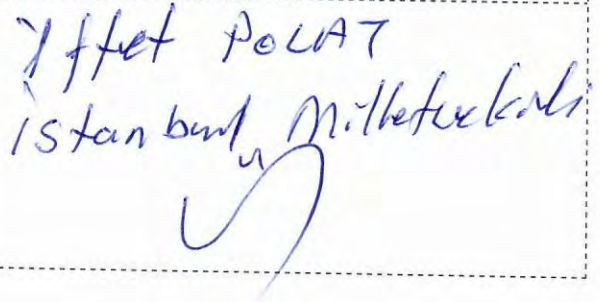 İffet POLAT
istanbul Milletvekili